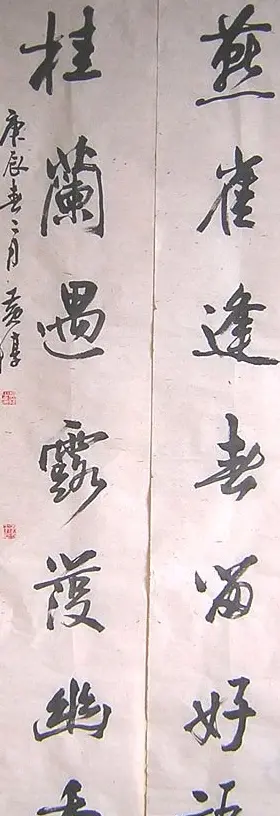 燕雀逢春留好語
桂蘭遇露護幽香
庚辰春二月黄惇